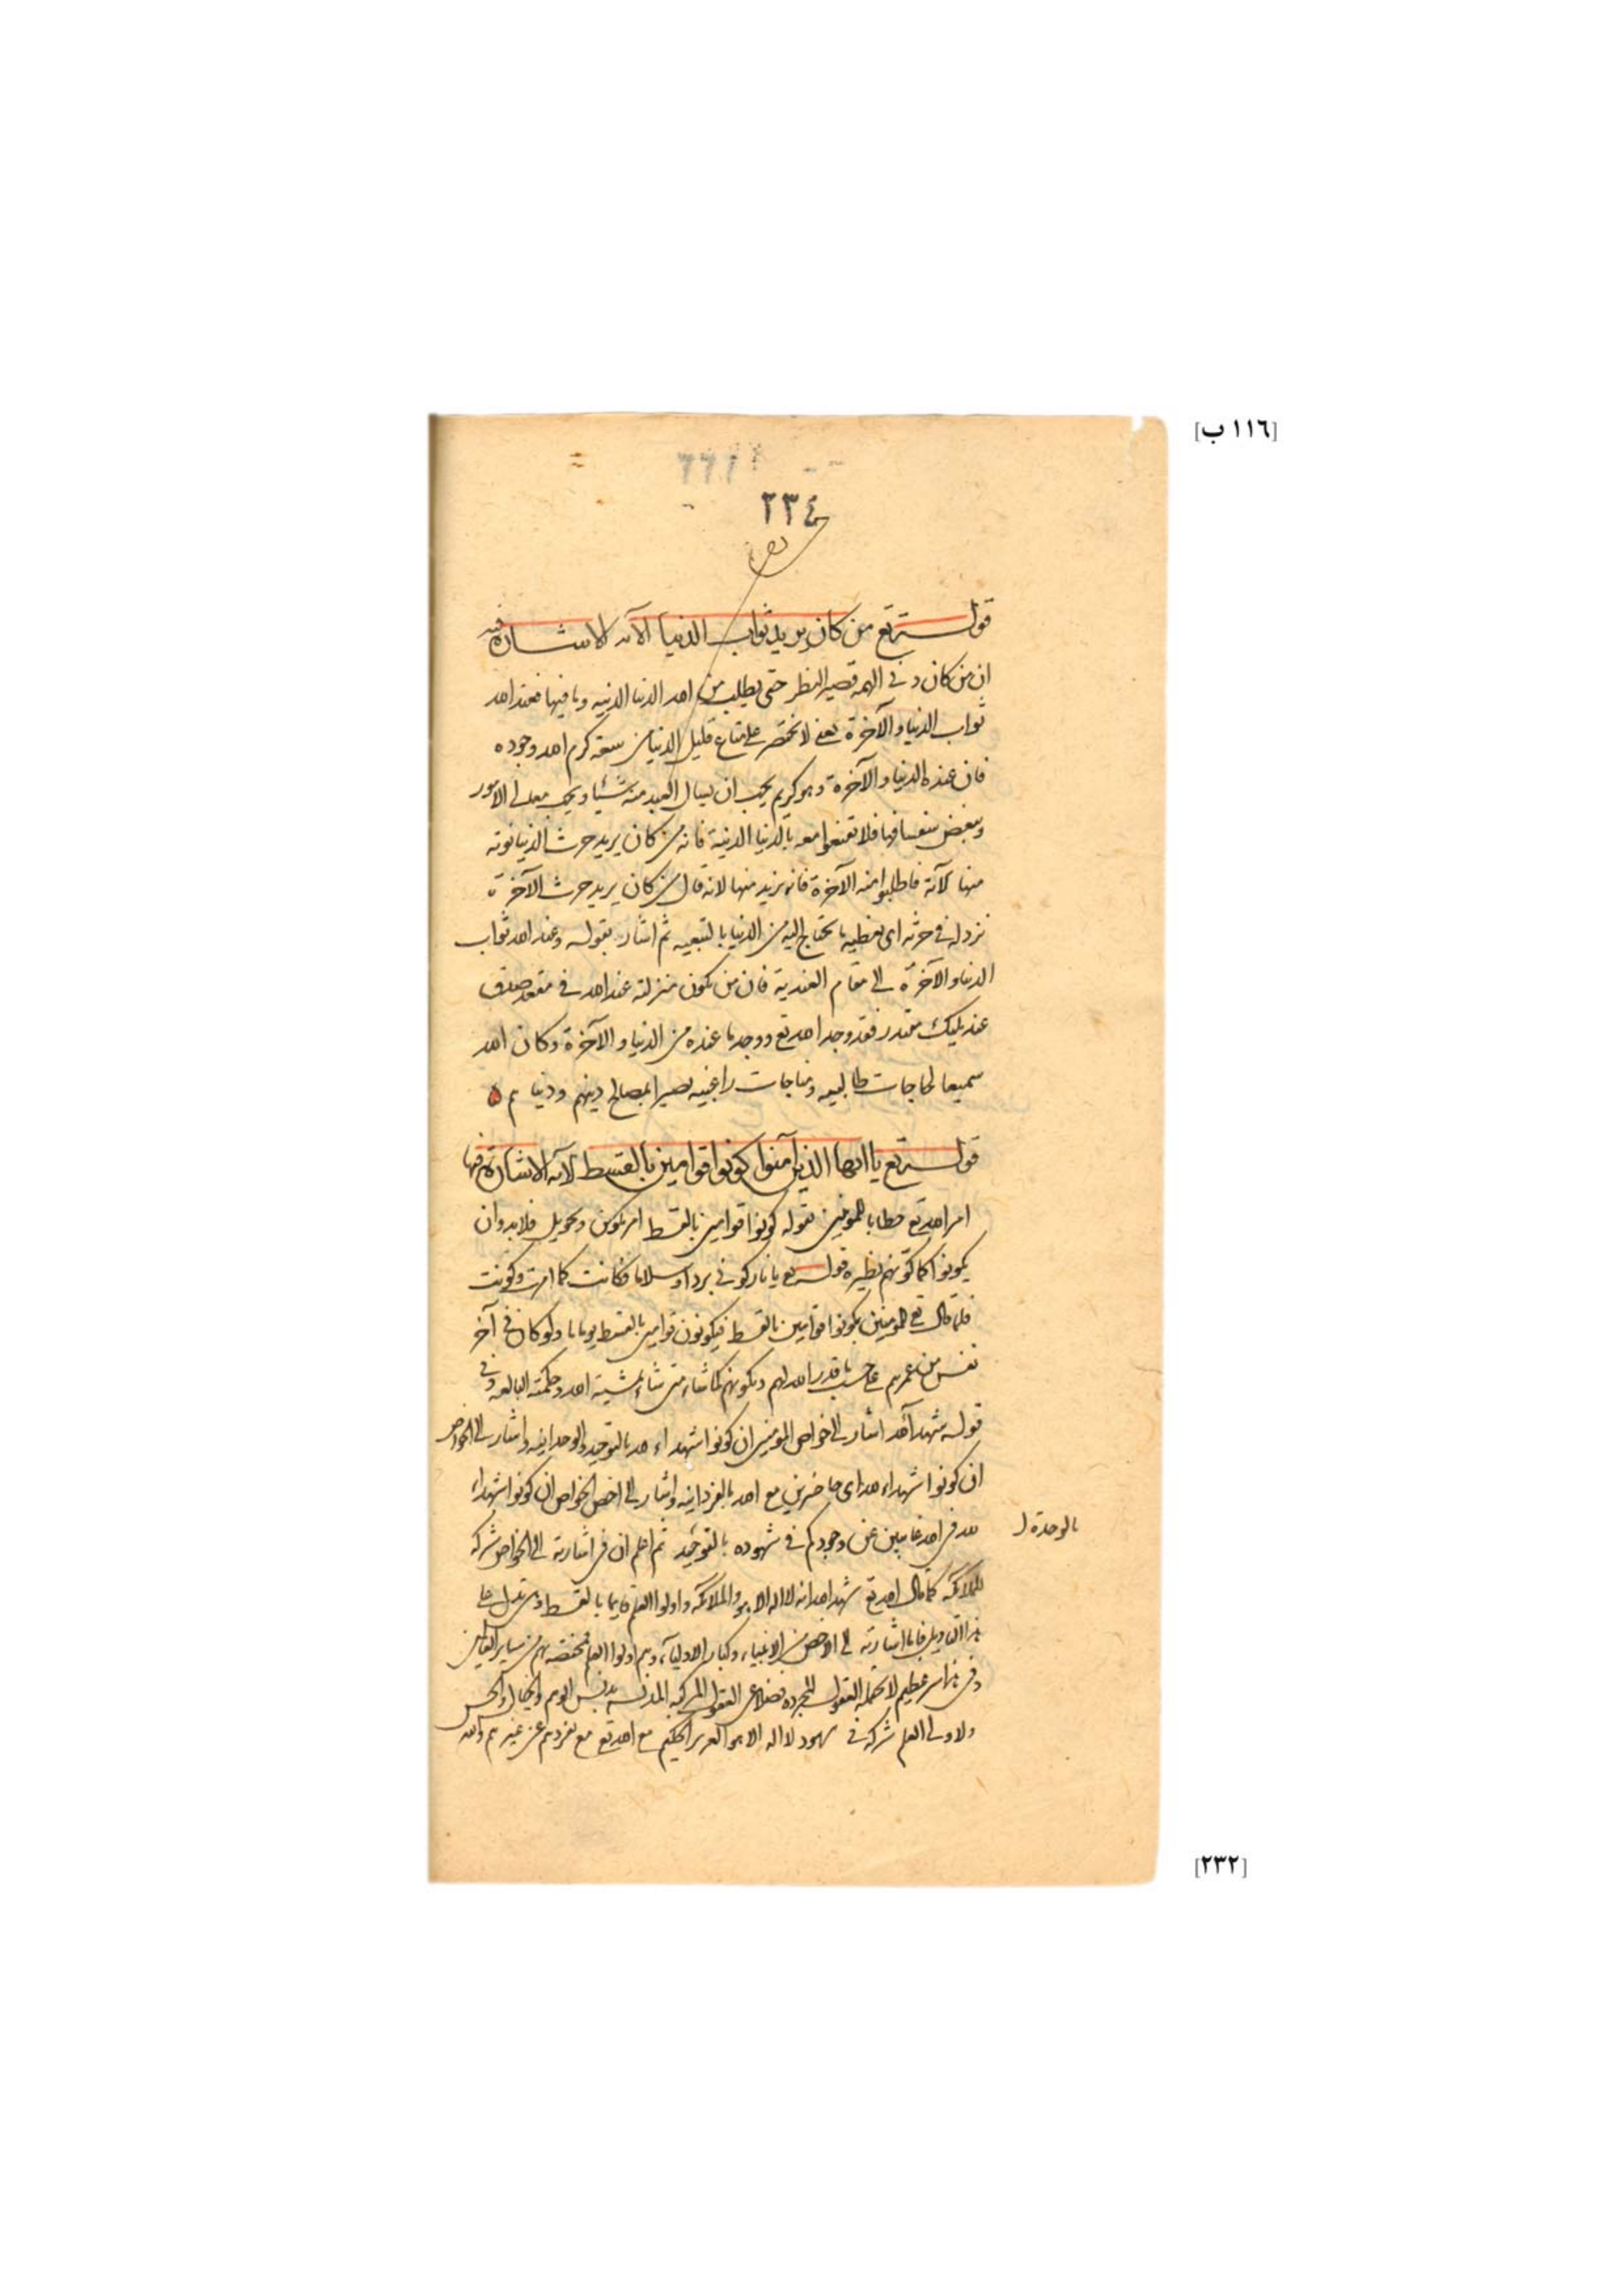 [١١٦ ب]
٢٣٤
قوله تع من كان يريد ثواب الدنيا الآية الاشارة فيه
ان من كان دنى الهمه قصير النظر حتى يطلب من الله الدنيا الدنيه وما فيها فعند الله
ثواب الدنيا والآخرة يعنى لا تختصر على متاع قليل الدنيا من سعة كرم الله وجوده
فان عنده الدنيا والآخرة وهو كريم يحب ان يسال العبد منه شيئا ويحب معالى الامور
ويبغض سفسافها فلا تقنعوا معه بالدنيا الدنية فانه من كان يريد حرث الدنيا نوته
منها الآية فاطلبوا منه الآخرة فانه يزيد منها لانه قال من كان يريد حرث الآخرة
نزد له فى حرثه اى نعطيه ما يحتاج اليه من الدنيا بالتبعيه ثم اشار بقوله وعند الله ثواب
الدنيا والآخرة الى مقام العندية فان من يكون منزلته عند الله فى مقعد صدق
عند مليك مقتدر فقد وجد الله تع ووجد ما عنده من الدنيا والآخرة وكان الله
سميعا لحاجات طالبيه ومناجات راغبيه بصيرا بمصالح دينهم ودنياهم ه
قوله تع يا ايها الذين آمنوا كونوا قوامين بالقسط الآية الاشارة فيها
امر الله تع خطابا للمومنين بقوله كونوا قوامين بالقسط امر تكوين وتحويل فلا بد وان
يكونوا كما كونهم نظيره قوله تع يا نار كونى بردا وسلاما فكانت كما امرت وكونت
فلما قال تع للمومنين كونوا قوامين بالقسط فيكونون قوامين بالقسط يوما ما ولو كان فى آخر
نفس من عمرهم على حسب ما قدر الله لهم وتكوينهم كما شاء متى شاء بمشية الله وحكمته البالغه وفى
قوله شهداء لله اشار الى خواص المومنين ان كونوا شهداء لله بالتوحيد والوحدانيه واشار الى الخواص
ان كونوا شهداء لله اى حاضرين مع الله بالفردانيه واشار الى اخص الخواص ان كونوا شهداء
لله فى الله غايبين عن وجودكم فى شهوده بالتوحيد ثم اعلم ان فى اشارته الى الخواص شركة
بالوحدة
للملائكه كما قال الله تع شهد الله انه لا اله الا هو والملائكه واولوا العلم قايما بالقسط تدل على
هذا التاويل فاما اشارته الى الاخص من الانبياء وكبار الاولياء وهم اولوا العلم فمختصه بهم من ساير العالمين
وفى هذا سر عظيم لا تحتمله العقول المجرده فضلا عن العقول المركبه المدنسه بدنس الوهم والخيال والحس
ولاولى العلم شركة فى شهود لا اله الا هو العزيز الحكيم مع الله تع مع تفردهم عن غيرهم والله
[٢٣٢]